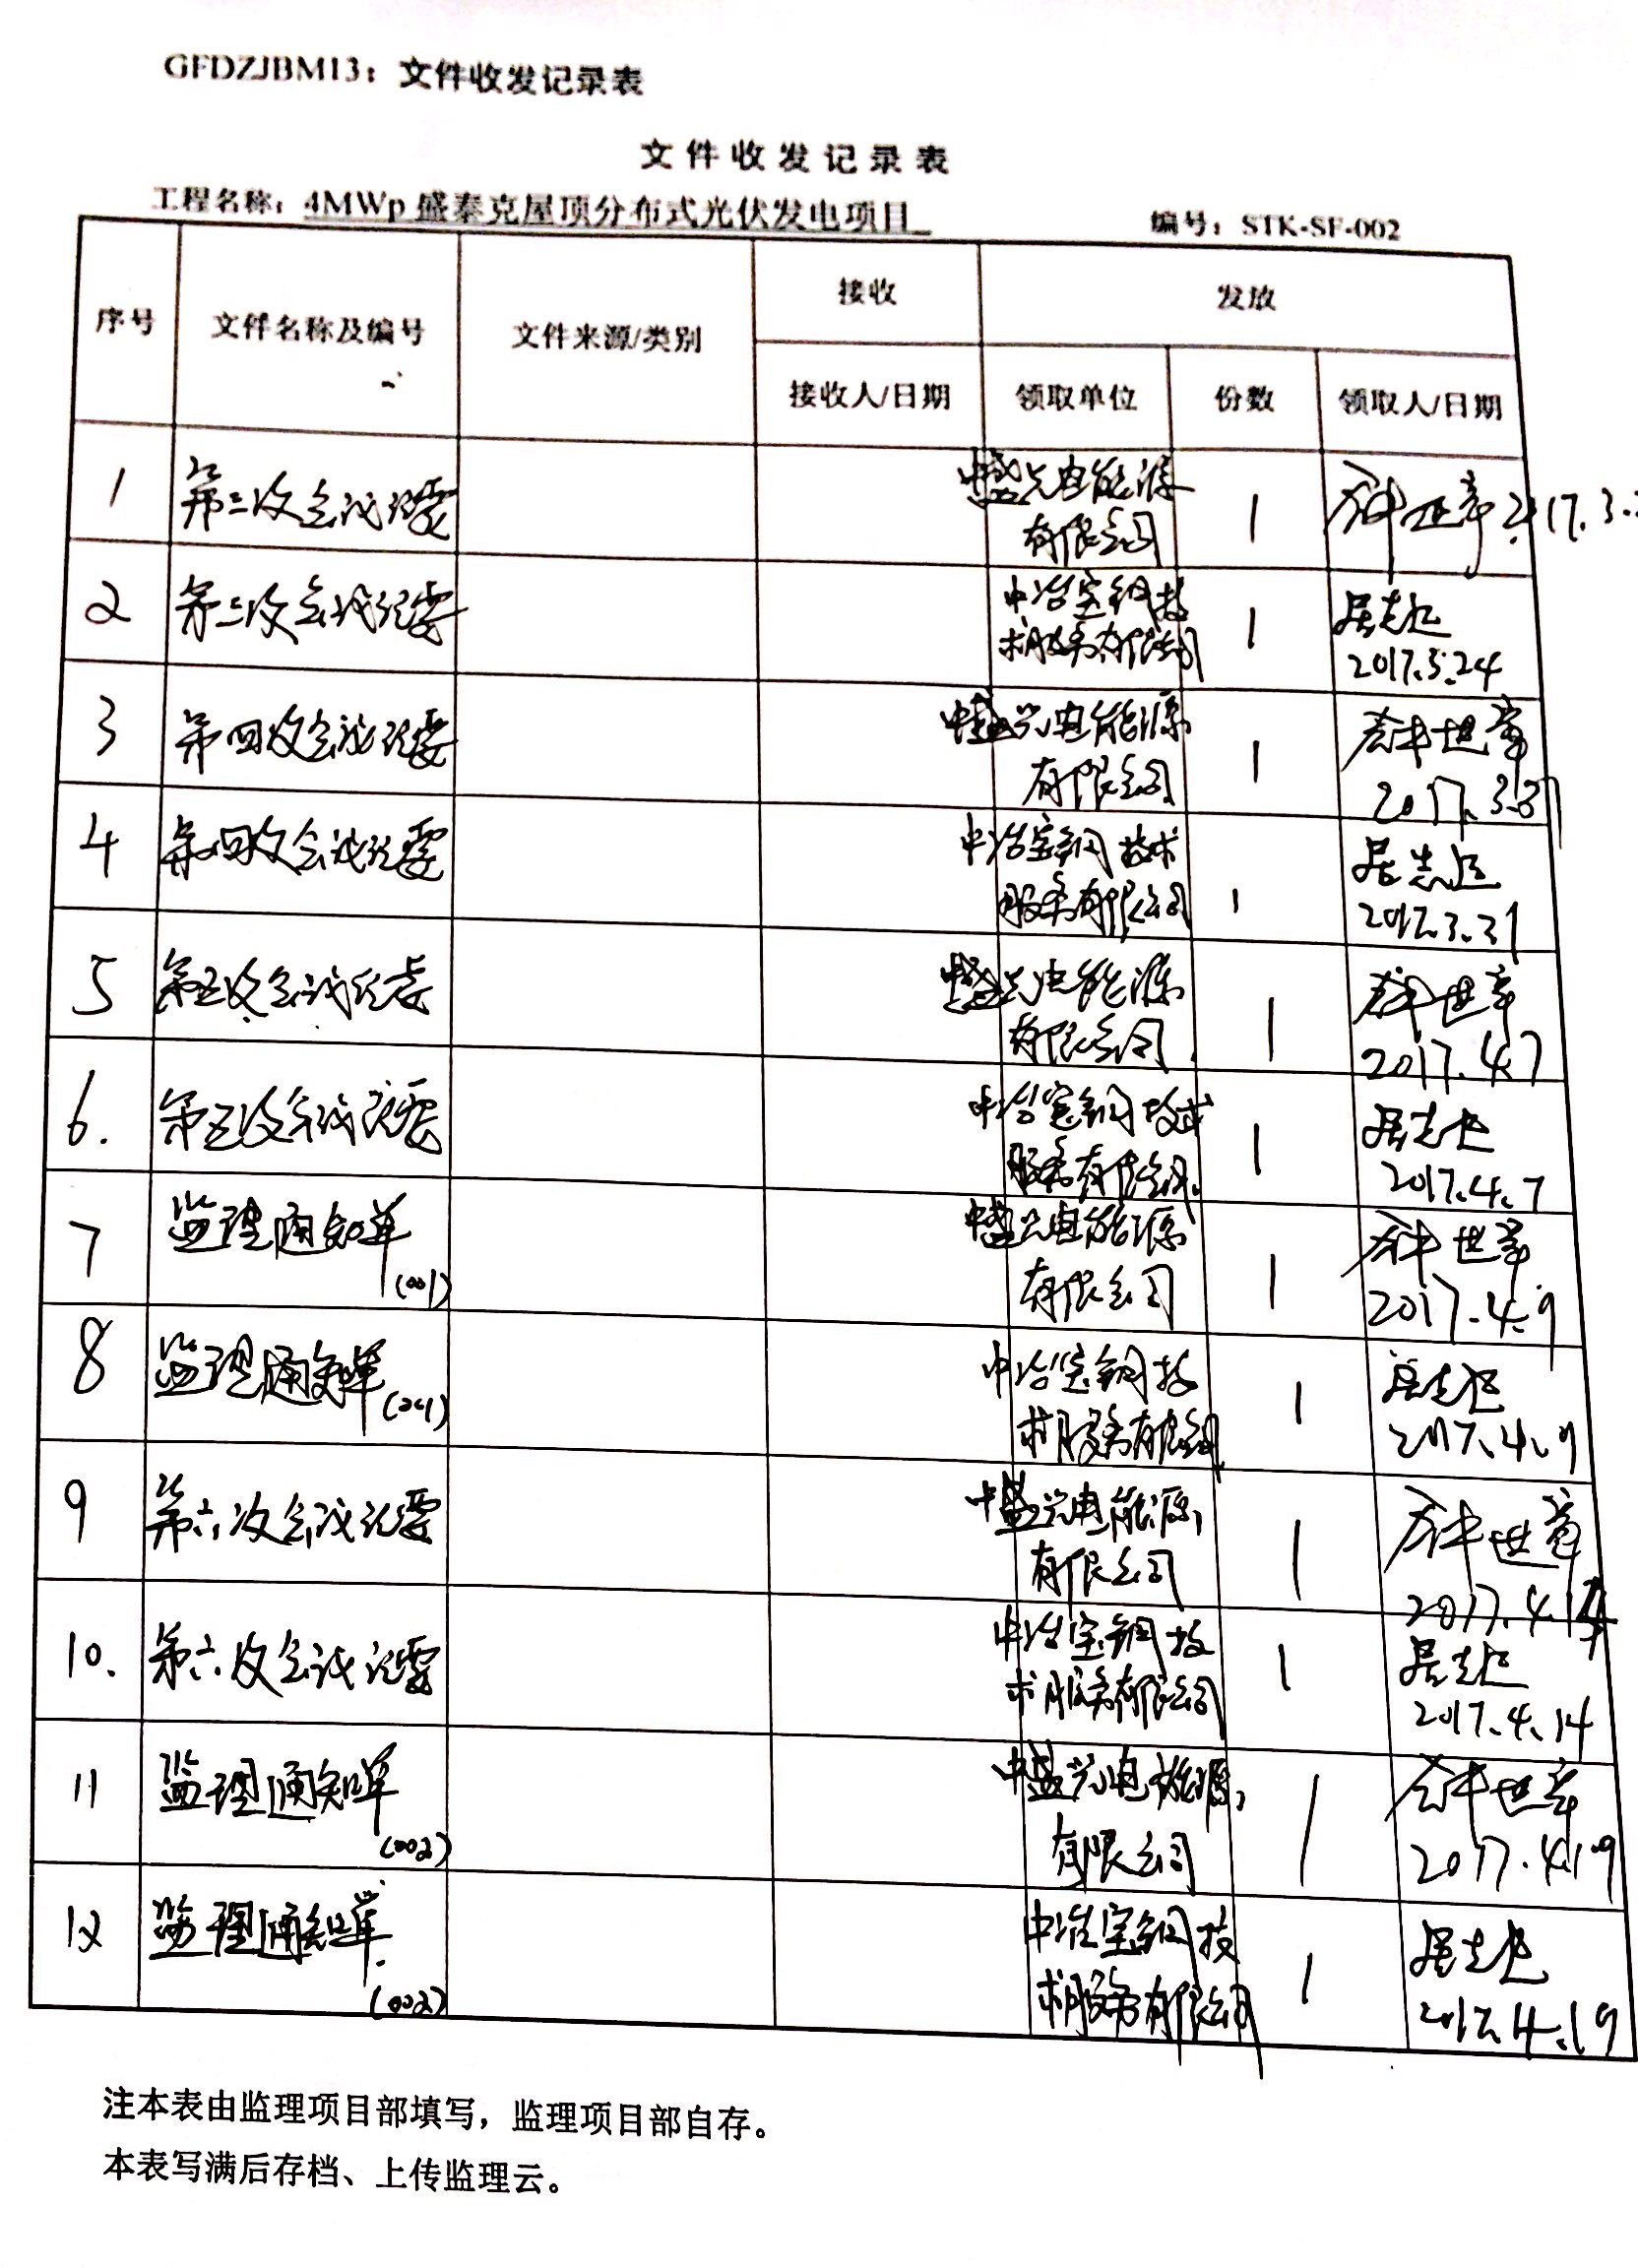 GFDZJBM13：文件收发记录表
文件收发记录表
工程名称：4MWp盛泰克屋顶分布式光伏发电项目 编号：STK-SF-002
序号 文件名称及编号 文件来源/类别 接收 发放
接收人/日期 领取单位 份数 领取人/日期
1 第三次会议纪要 中盛光电能源 1 2017.3.
有限公司
2 第三次会议纪要 中冶宝钢技 1
术服务有限公司 2017.3.24
3 第四次会议纪要 中盛光电能源 1 世章
有限公司 2017.3.31
4 第四次会议纪要 中冶宝钢技术 1
服务有限公司 2017.3.31
5 第五次会议纪要 中盛光电能源 1 世章
有限公司 2017.4.7
6. 第五次会议纪要 中冶宝钢技术 1
服务有限公司 2017.4.7
7 监理通知单 中盛光电能源 1 世章
(001) 有限公司 2017.4.9
8 监理通知单 中冶宝钢技 1
(001) 术服务有限公司 2017.4.9
9 第六次会议纪要 中盛光电能源 1 世章
有限公司 2017.4.14
10. 第六次会议纪要 中冶宝钢技 1
术服务有限公司 2017.4.14
11 监理通知单 中盛光电能源 1 世章
(002) 有限公司 2017.4.19
12 监理通知单 中冶宝钢技 1
(002) 术服务有限公司 2017.4.19
注本表由监理项目部填写，监理项目部自存。
本表写满后存档、上传监理云。